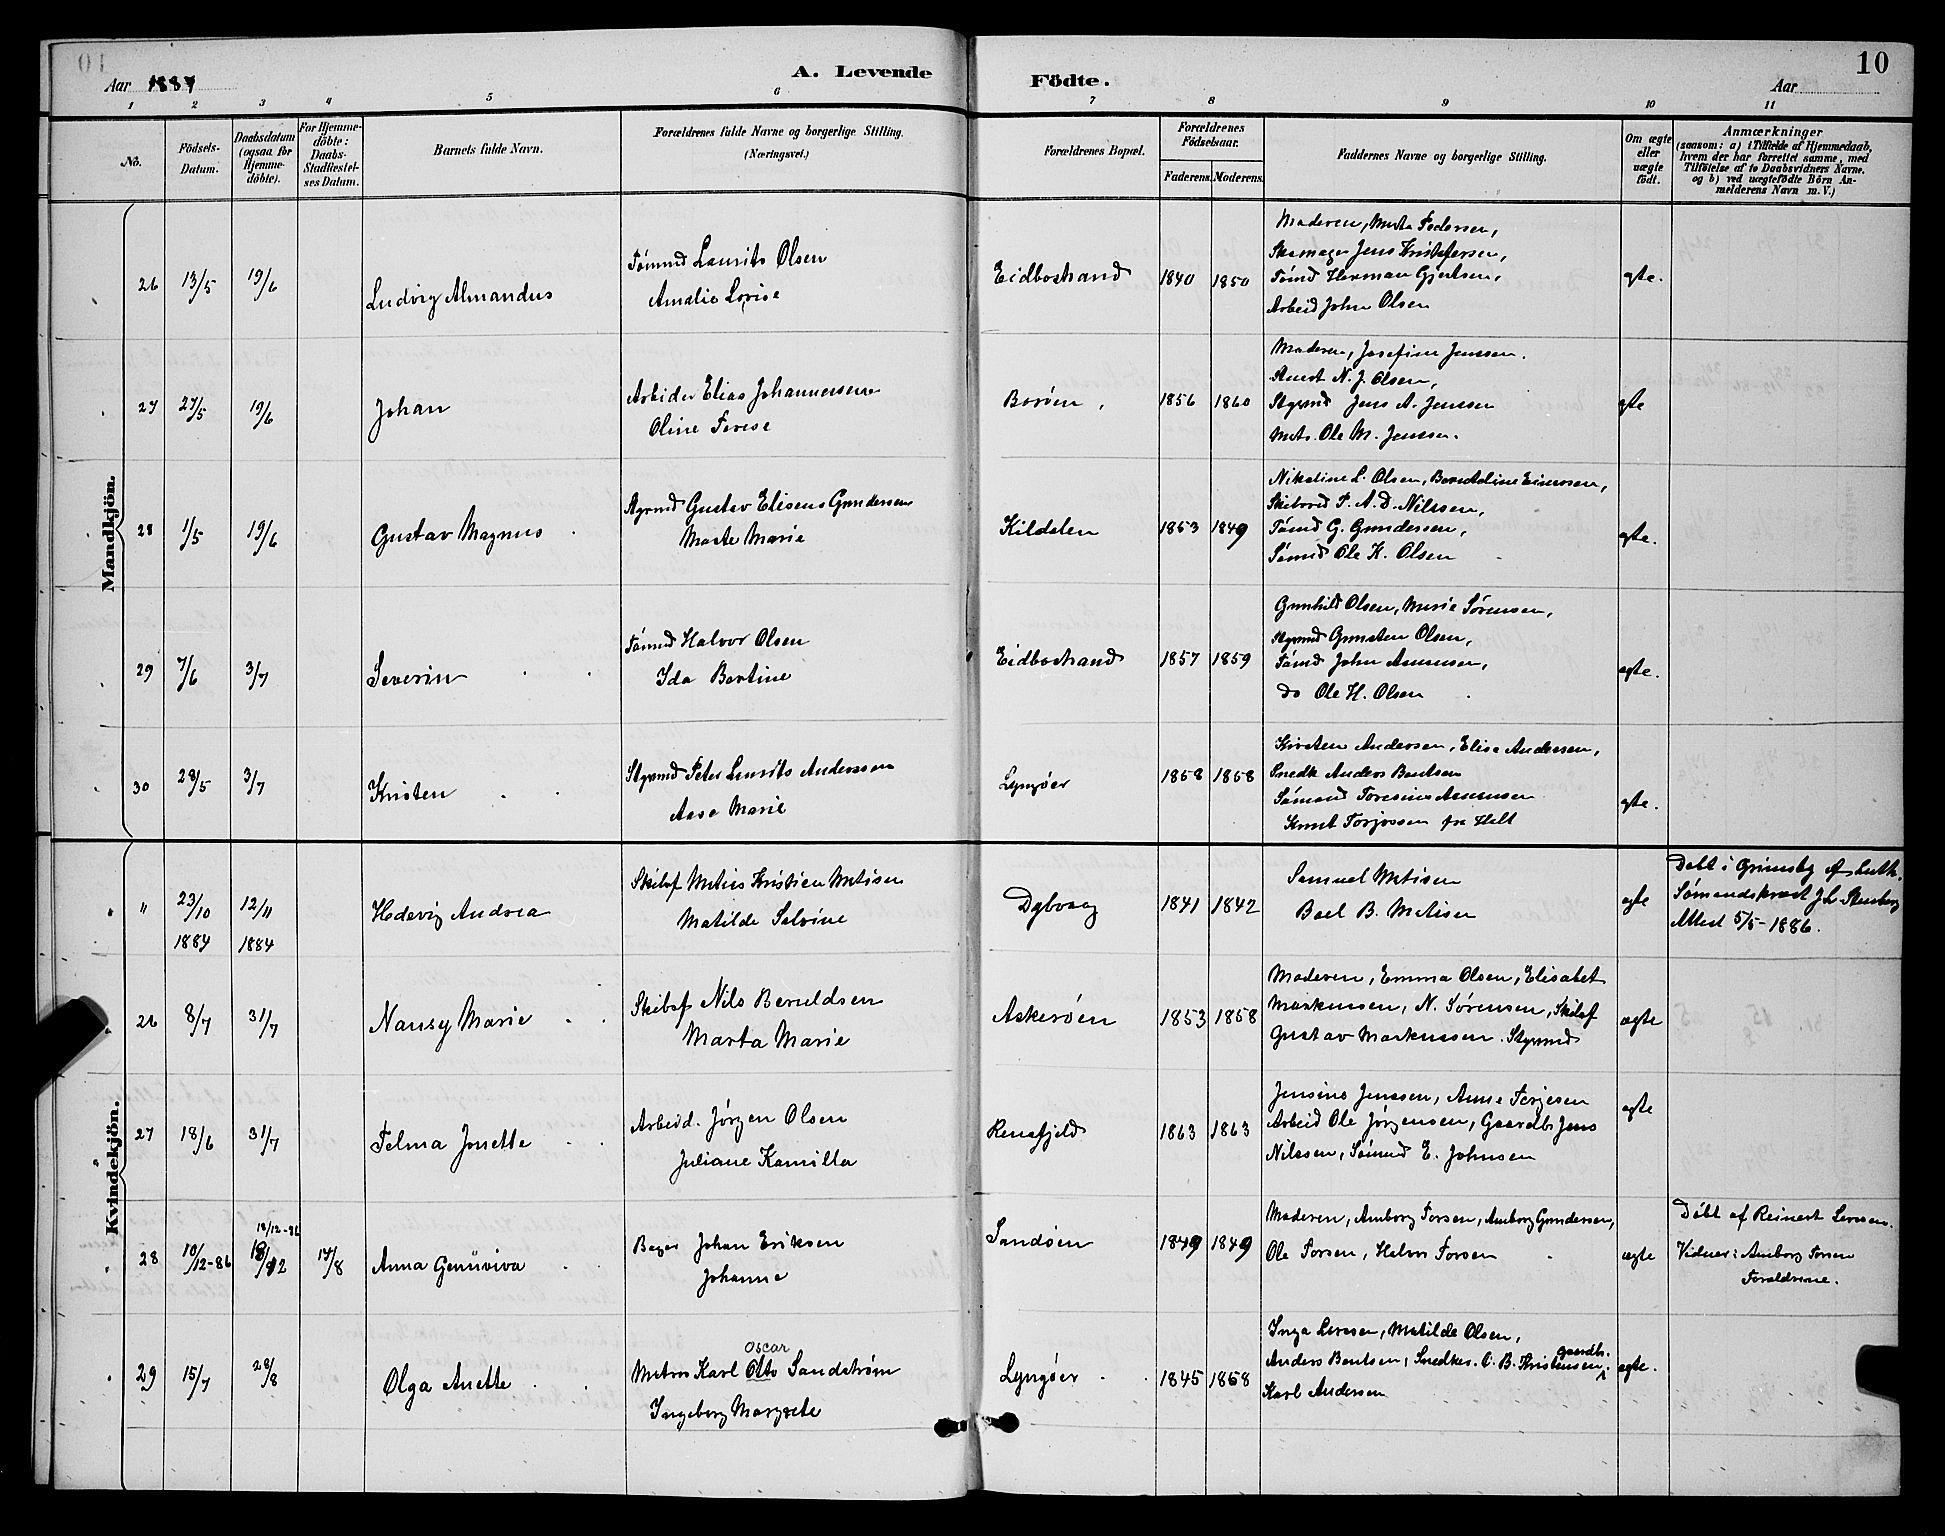 10
Aar 1887
A. Levende Födte.
Aar
1 2 3 4 5 6 7 8 9 10 11
No.
Födsels-Datum.
Daabsdatum (ogsaa for Hjemme-döbte).
For Hjemme-döbte: Daabs-Stadfæstel-ses Datum.
Barnets fulde Navn.
Forældrenes fulde Navne og borgerlige Stilling. (Næringsvei.)
Forældrenes Bopæl.
Forældrenes Födselsaar.
Faderens. Moderens.
Faddernes Navne og borgerlige Stilling.
Om ægte eller uægte födt.
Anmærkninger
(saasom: a) i Tilfælde af Hjemmedaab,
hvem der har forrettet samme, med
Tilföielse af to Daabsvidners Navne,
og b) ved uægtefödte Börn An-
melderens Navn m. V.)
Mandkjön.
26 13/5 19/6 Ludvig Almandus
Tömmd Laurits Olsen
Amalie Lovise
Eidbostrand 1840 1850
Moderen, Marta Pedersen,
Skomager Jens Kristofersen,
Tömd Herman Gjertsen,
Arbeid John Olsen
ægte.
27 27/5 19/6 Johan
Arbider Elias Johannersen
Oline Terese
Borøen 1856 1860
Moderen, Josefine Jenssen.
N. J. Olsen,
Styrmd Jens A. Jenssen
Mats. Ole M. Jenssen.
ægte
28 1/5 19/6 Gustav Magnus
Styrmd Gustav Eliseus Gundersen
Marte Marie
Kildalen 1853 1849
Nikoline L. Olsen, Berntoline Einersen,
T. A. D. Nilssen,
Tømd G. Gundersen,
Sømd Ole K. Olsen
ægte.
29 7/6 3/7 Severin
Tømmd Halvor Olsen
Ida Bertine
Eidbostrand 1857 1859
Gunhild Olsen, Marie Sørensen,
Styrmd Gunsten Olsen,
Tømd John Asmundsen,
do Ole H. Olsen
ægte.
30 28/5 3/7 Kristen
Styrmd Peter Laurits Anderssen
Aase Marie
Lyngøer 1858 1858
Kirsten Andersen, Elise Andersen,
Snedk Anders Bentsen
Sømand Toresius Asmunsen
Knut Torjussen fra Holt
ægte.
Kvindekjön.
" 23/10 1884 12/11 1884 Hedevig Andrea
Skibsf Matius Kristian Matisen
Matilde Salvine
Dybvaag 1841 1842
Samuel Matisen
Boel B. Matisen
ægte
Døbt i Grimsby af luth.
Sømandspræst J. L. Stenberg
Attest 5/5-1886.
26 8/7 31/7 Nansy Marie
Skibsf Nils Beruldsen
Marta Marie
Askerøen 1853 1858
Moderen, Emma Olsen, Elisabet
Markussen, N. Sørensen, Skibsf
Gustav Markussen. Styrmd
ægte
27 18/6 31/7 Telma Jonette
Arbeid. Jørgen Olsen
Juliane Kamilla
Rensfjeld 1863 1863
Jensine Jenssen, Anne Terjesen
Arbeid Ole Jørgensen, Gaardbr Jens
Nilssen, Sømmd E. Johnsen
ægte
28 10/12-86 18/12-86 18/12 14/8 Anna Genuviva
Bager Johan Eriksen
Johanne
Sandøen 1849 1849
Moderen, Amborg Torsen, Amborg Gundersen,
Ole Torsen, Halvor Torsen
ægte
Døbt af Reinert Larssen.
Vidner: Amborg Torsen
Foraldrene.
29 15/7 28/8 Olga Anette
Matros Karl Otto Oscar Sandstrøm
Ingeborg Margrete
Lyngøer 1845 1858
Inga Larssen, Matilde Olsen,
Anders Bentsen, Snedker. O. B. Kristensen, gaardb.
Karl Andersen
ægte.